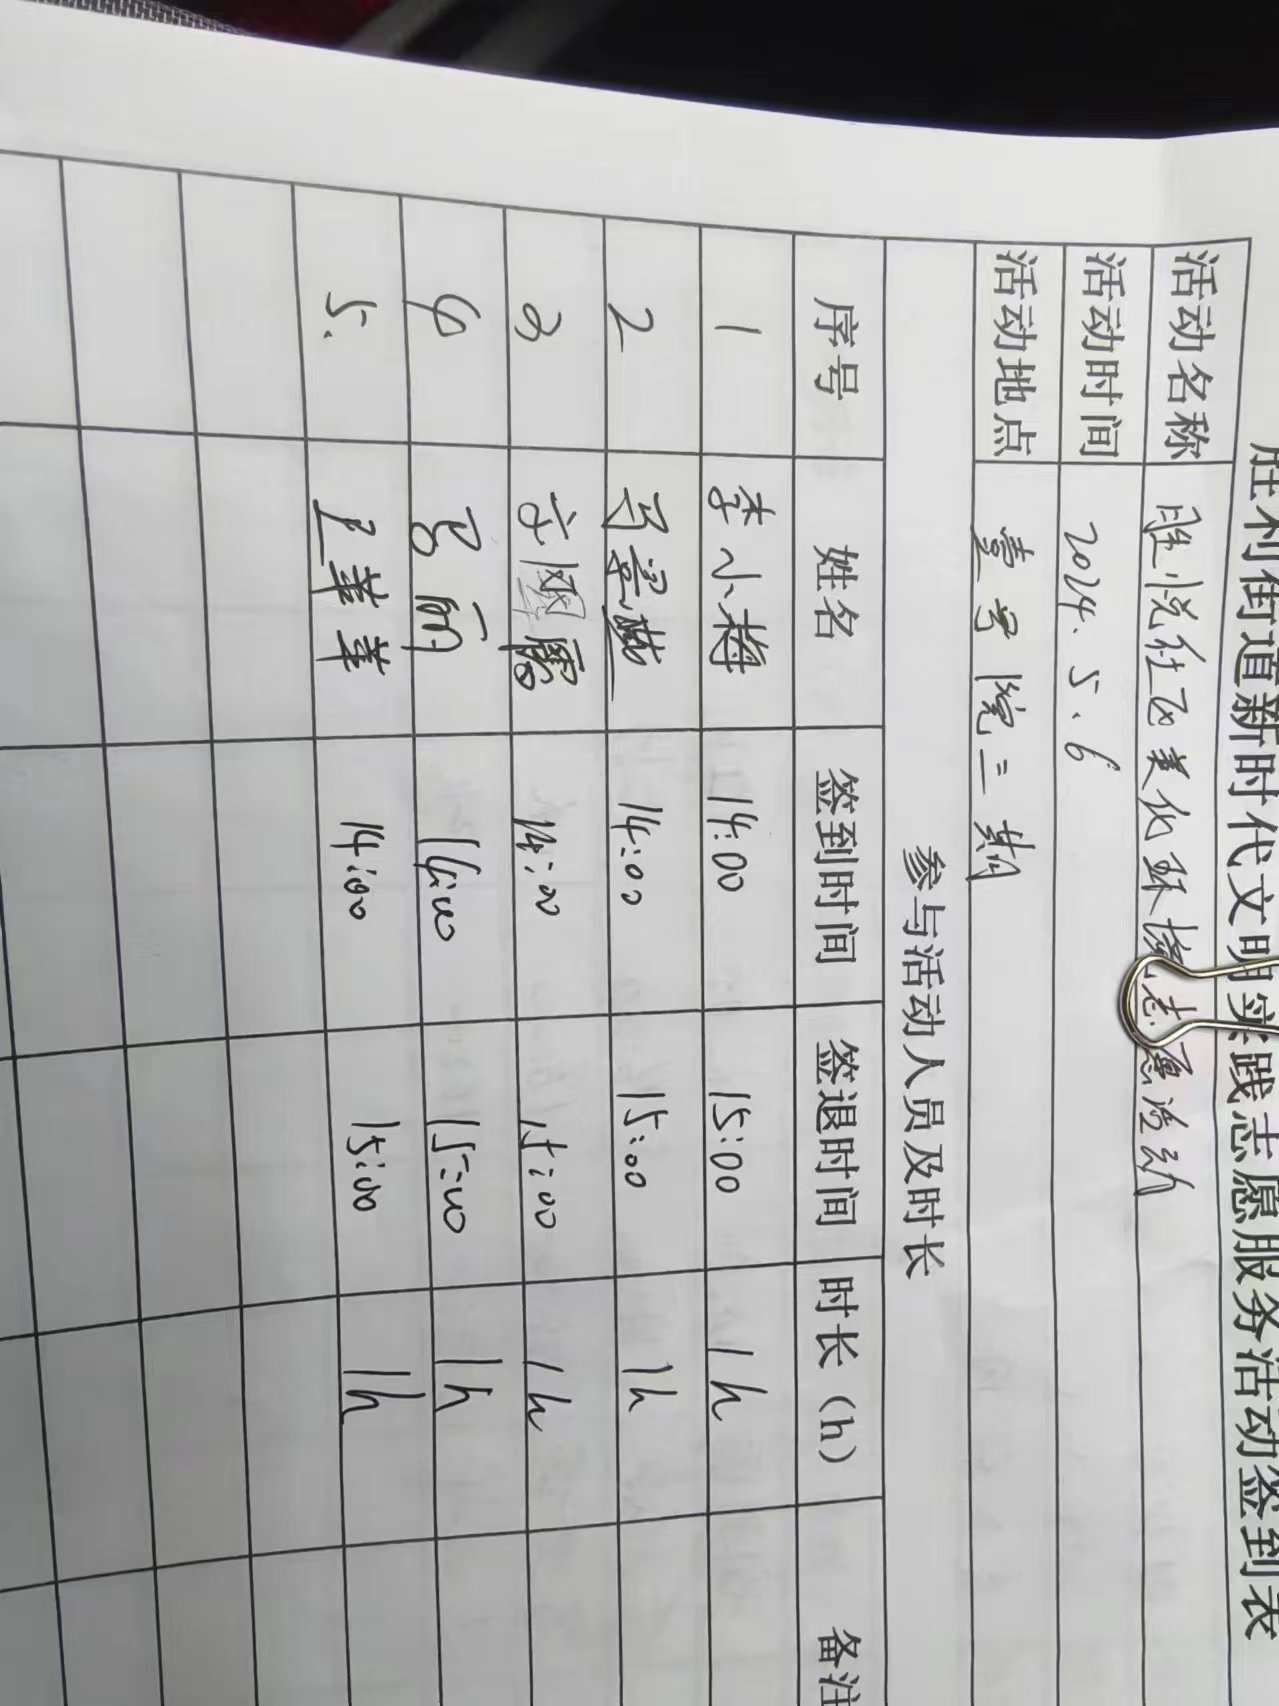 胜利街道新时代文明实践志愿服务活动签到表
活动名称 胜悦社区美化环境志愿活动
活动时间 2024.5.6
活动地点 壹号院二期
参与活动人员及时长
序号 姓名 签到时间 签退时间 时长（h） 备注
1 李小梅 14:00 15:00 1h
2 14:00 15:00 1h
3 14:00 15:00 1h
4 马丽 14:00 15:00 1h
5. 王華華 14:00 15:00 1h